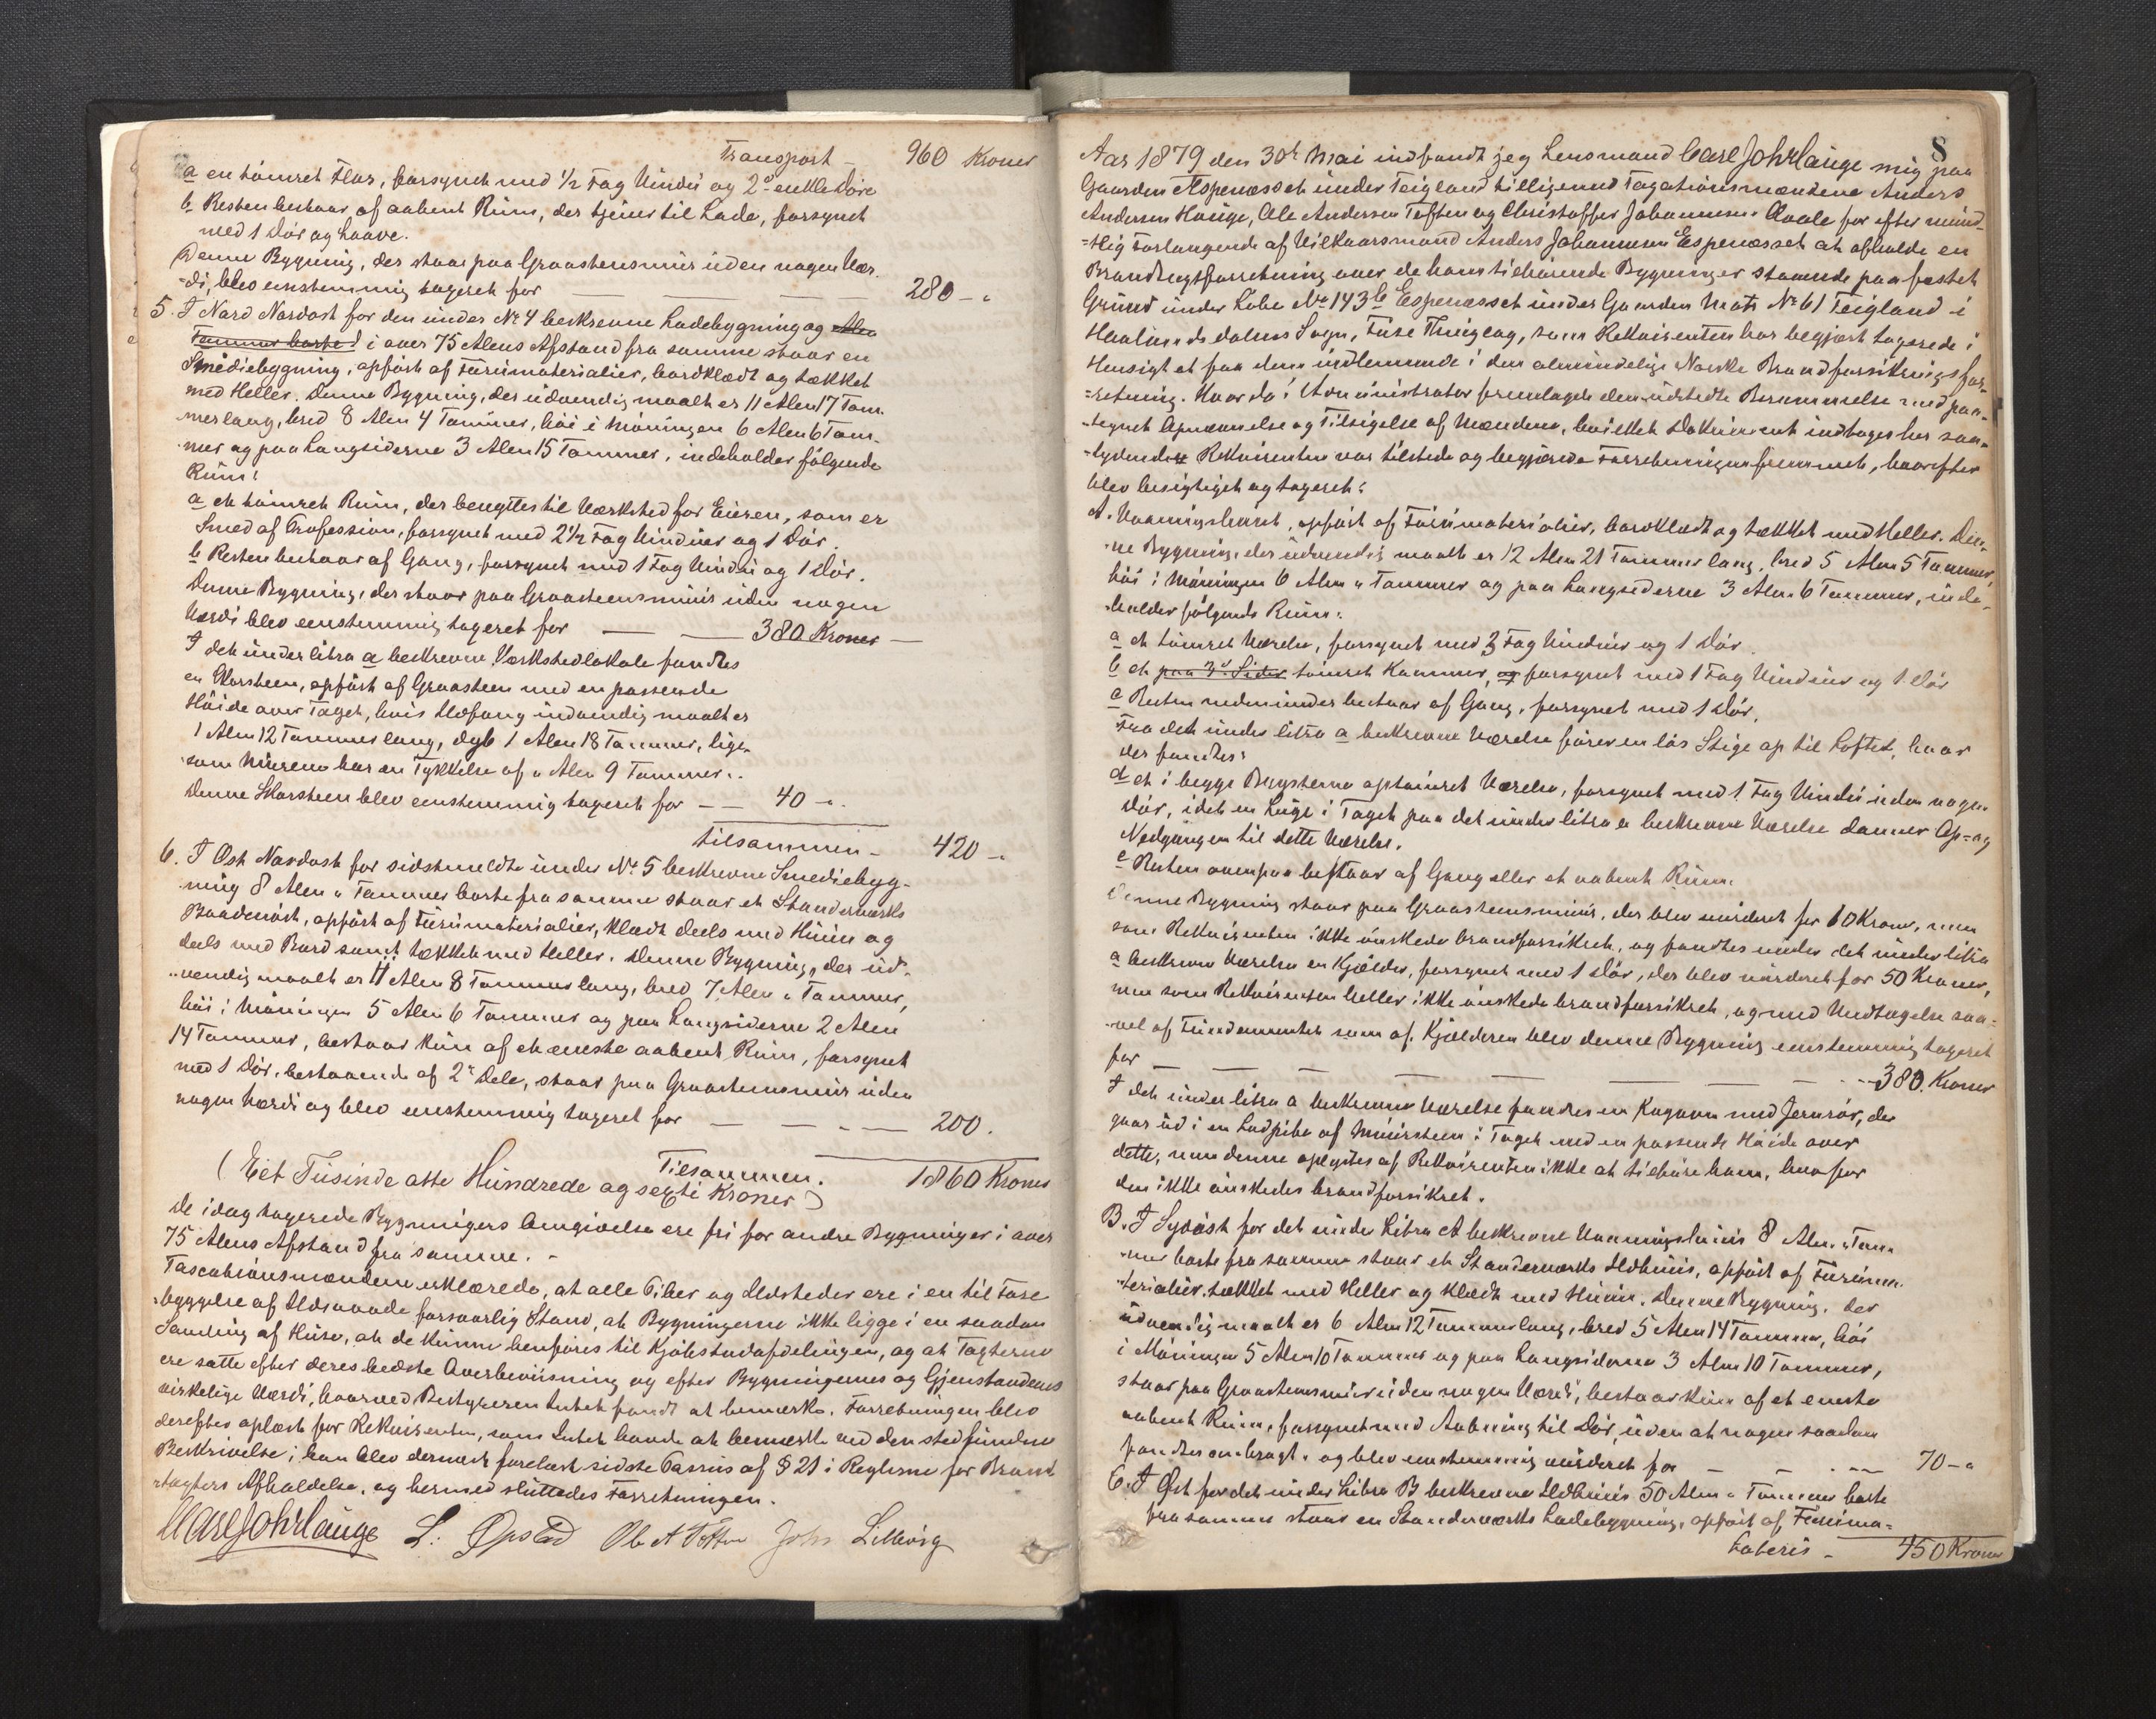 Transport - 960 Kroner
a en tømret Flor, forsynet med 1/2 Fag Vindu og 2de enkle Døre
b Resten bestaar af aabent Rum, der tjener til Lade, forsynet
med 1 Dør og Laave.
Denne Bygning, der staar paa Graasteensmuur uden nogen Vær-
=di, blev eenstemmig taxeret for — — — 280 - "
5. I Nord Nordost for den under No 4 beskrevne Ladebygning og Alen
Tommer borte i over 75 Alens Afstand fra samme staar en
Smediebygning, opført af Furumaterialier, bordklædt og tækket
med Heller. Denne Bygning, der udvendig maalt er 11 Alen 17 Tom-
mer lang, bred 8 Alen 4 Tommer, høi i Møningen 6 Alen 6 Tom-
mer og paa Langsiderne 3 Alen 15 Tommer, indeholder følgende
Rum:
a et tømret Rum, der benyttes til Værksted for Eieren, som er
Smed af Profession, forsynet med 2 1/2 Fag Vinduer og 1 Dør.
b Resten bestaar af Gang, forsynet med 1 Fag Vindu og 1 Dør.
Denne Bygning, der staar paa Graasteensmuur uden nogen
Værdi blev eenstemmig taxeret for — — 380 Kroner —
I det under litra a beskrevne Værkstedlokale fandtes
en Skorsteen, opført af Graasteen med en passende
Høide over Taget, hvis Udfang indvendig maalt er
1 Alen 12 Tommer lang, dyb 1 Alen 18 Tommer, lige-
som Murene har en Tykkelse af " Alen 9 Tommer.
Denne Skorsteen blev eenstemmig taxeret for — — 40 - "
tilsammen - 420 - "
6. I Ost Nordost for sidstmeldte under No 5 beskrevne Smediebyg-
ning 8 Alen " Tommer borte fra samme staar et Standerværks
Baadenøst, opført af Furumaterialier, klædt deels med Huun og
deels med Bord samt tækket med Heller. Denne Bygning, der ud-
vendig maalt er 11 Alen 8 Tommer lang, bred 7 Alen " Tommer,
høi i Møningen 5 Alen 6 Tommer og paa Langsiderne 2 Alen
14 Tommer, bestaar kun af et eneste aabent Rum, forsynet
med 1 Dør, bestaaende af 2de Dele, staar paa Graasteensmuur uden
nogen Værdi og blev eenstemmig taxeret for — — - — 200.
Tilsammen. 1860 Kroner
(Eet Tusinde otte Hundrede og sexti Kroner)
De idag taxerede Bygningers Omgivelse ere fri for andre Bygninger i over
75 Alens Afstand fra samme. -
Taxationsmændene erklærede, at alle Piber og Ildsteder ere i en til Fore-
byggelse af Ildsvaade forsvarlig Stand, at Bygningerne ikke ligge i en saadan
Samling af Huse, at de kunne henføres til Kjøbstadafdelingen, og at Taxterne
ere satte efter deres bedste Overbeviisning og efter Bygningernes og Gjenstandenes
virkelige Værdi, hvorved Bestyreren Intet fandt at bemærke. Forretningen blev
derefter oplæst for Rekvirenten, som Intet havde at bemærke ved den stedfundne
Beskrivelse; han blev dernæst forelæst sidste Passus af § 21 i Reglerne for Brand-
taxters Afholdelse, og hermed sluttedes Forretningen.
Carl Johr Lange L. Opstad Ole A Toften John Lillevig
8
Aar 1879 den 30te Mai indfandt jeg Lensmand Carl Johr Lange mig paa
Gaarden Espenæsset under Teigland tilligemed Taxationsmændene Anders
Andersen Hauge, Ole Andersen Toften og Christoffer Johannesen Qvale for efter mund-
=tlig Forlangende af Vilkaarsmand Anders Johannesen Espenæsset at afholde en
Brandtaxtforretning over de ham tilhørende Bygninger staaende paa festet
Grund under Løbe No 143 b Espenæsset under Gaarden Matr No 61 Teigland i
Haalandsdalens Sogn, Fuse Thinglag, som Rekvirenten har begjært taxerede i
Hensigt at faa dem indlemmede i den almindelige Norske Brandforsikringsfor-
=retning. Hvorda! Administrator fremlagde den udstedte Berammelse med paa-
tegnet Opnævnelse og Tilsigelse af Mændene, hvilket Dokument indtages her saa-
=lydende Rekvirenten var tilstede og begjærede Forretningen fremmet, hvorefter
blev besigtiget og taxeret:
A. Vaaningshuset, opført af Furumaterialier, bordklædt og tækket med Heller. Den-
ne Bygning, der udvendig maalt er 12 Alen 21 Tommer lang, bred 5 Alen 5 Tommer,
høi i Møningen 6 Alen " Tommer og paa Langsiderne 3 Alen 6 Tommer, inde-
holder følgende Rum:
a et tømret Værelse, forsynet med 3 Fag Vinduer og 1 Dør.
b et paa 3de Sider tømret Kammer, og forsynet med 1 Fag Vinduer og 1 Dør
c Resten nedenunder bestaar af Gang, forsynet med 1 Dør.
Fra det under litra a beskrevne Værelse fører en løs Stige op til Loftet, hvor
der fandtes:
d et i begge Røysterne optømret Værelse, forsynet med 1 Fag Vindu uden nogen
Dør, idet en Luge i Taget paa det under litra a beskrevne Værelse danner Op- og
Nedgangen til dette Værelse.
e Resten ovenpaa bestaar af Gang eller et aabent Rum.
Denne Bygning staar paa Graasteensmuur, der blev vurderet for 60 Kroner, men
som Rekvirenten ikke ønskede brandforsikret, og fandtes under det under litra
a beskrevne Værelse en Kjælder, forsynet med 1 Dør, der blev vurderet for 50 Kroner,
men som Rekvirenten heller ikke ønskede brandforsikret, og med Undtagelse saa-
vel af Fundamentet som af Kjælderen blev denne Bygning eenstemmig taxeret
for — — — — — — — — — 380. Kroner
I det under litra a beskrevne Værelse fandtes en Kogeovn med Jernrør, der
gaar ud i en Ludpibe af Muursteen i Taget med en passende Høide over
dette, men denne oplystes af Rekvirenten ikke at tilhøre ham, hvorfor
den ikke ønskedes brandforsikret.
B. I Sydost for det under Litra A beskrevne Vaaningshuus 8 Alen " Tom-
mer borte fra samme staar et Standerværks Ildhuus, opført af Furuma-
terialier, tækket med Heller og klædt med Huun. Denne Bygning, der
udvendig maalt er 6 Alen 12 Tommer lang, bred 5 Alen 14 Tommer, høi
i Møningen 5 Alen 10 Tommer og paa Langsiderne 3 Alen 10 Tommer,
staar paa Graasteensmuur uden nogen Værdi, bestaar kun af et eneste
aabent Rum, forsynet med Aabning til Dør, uden at nogen saadan
fandtes anbragt, og blev eenstemmig vurderet for — — - — 70 - "
C. I Ost for det under Litra B beskrevne Ildhuus 50 Alen " Tommer borte
fra samme staar en Standerværks Ladebygning, opført af Furuma=
Lateris - 450 Kroner